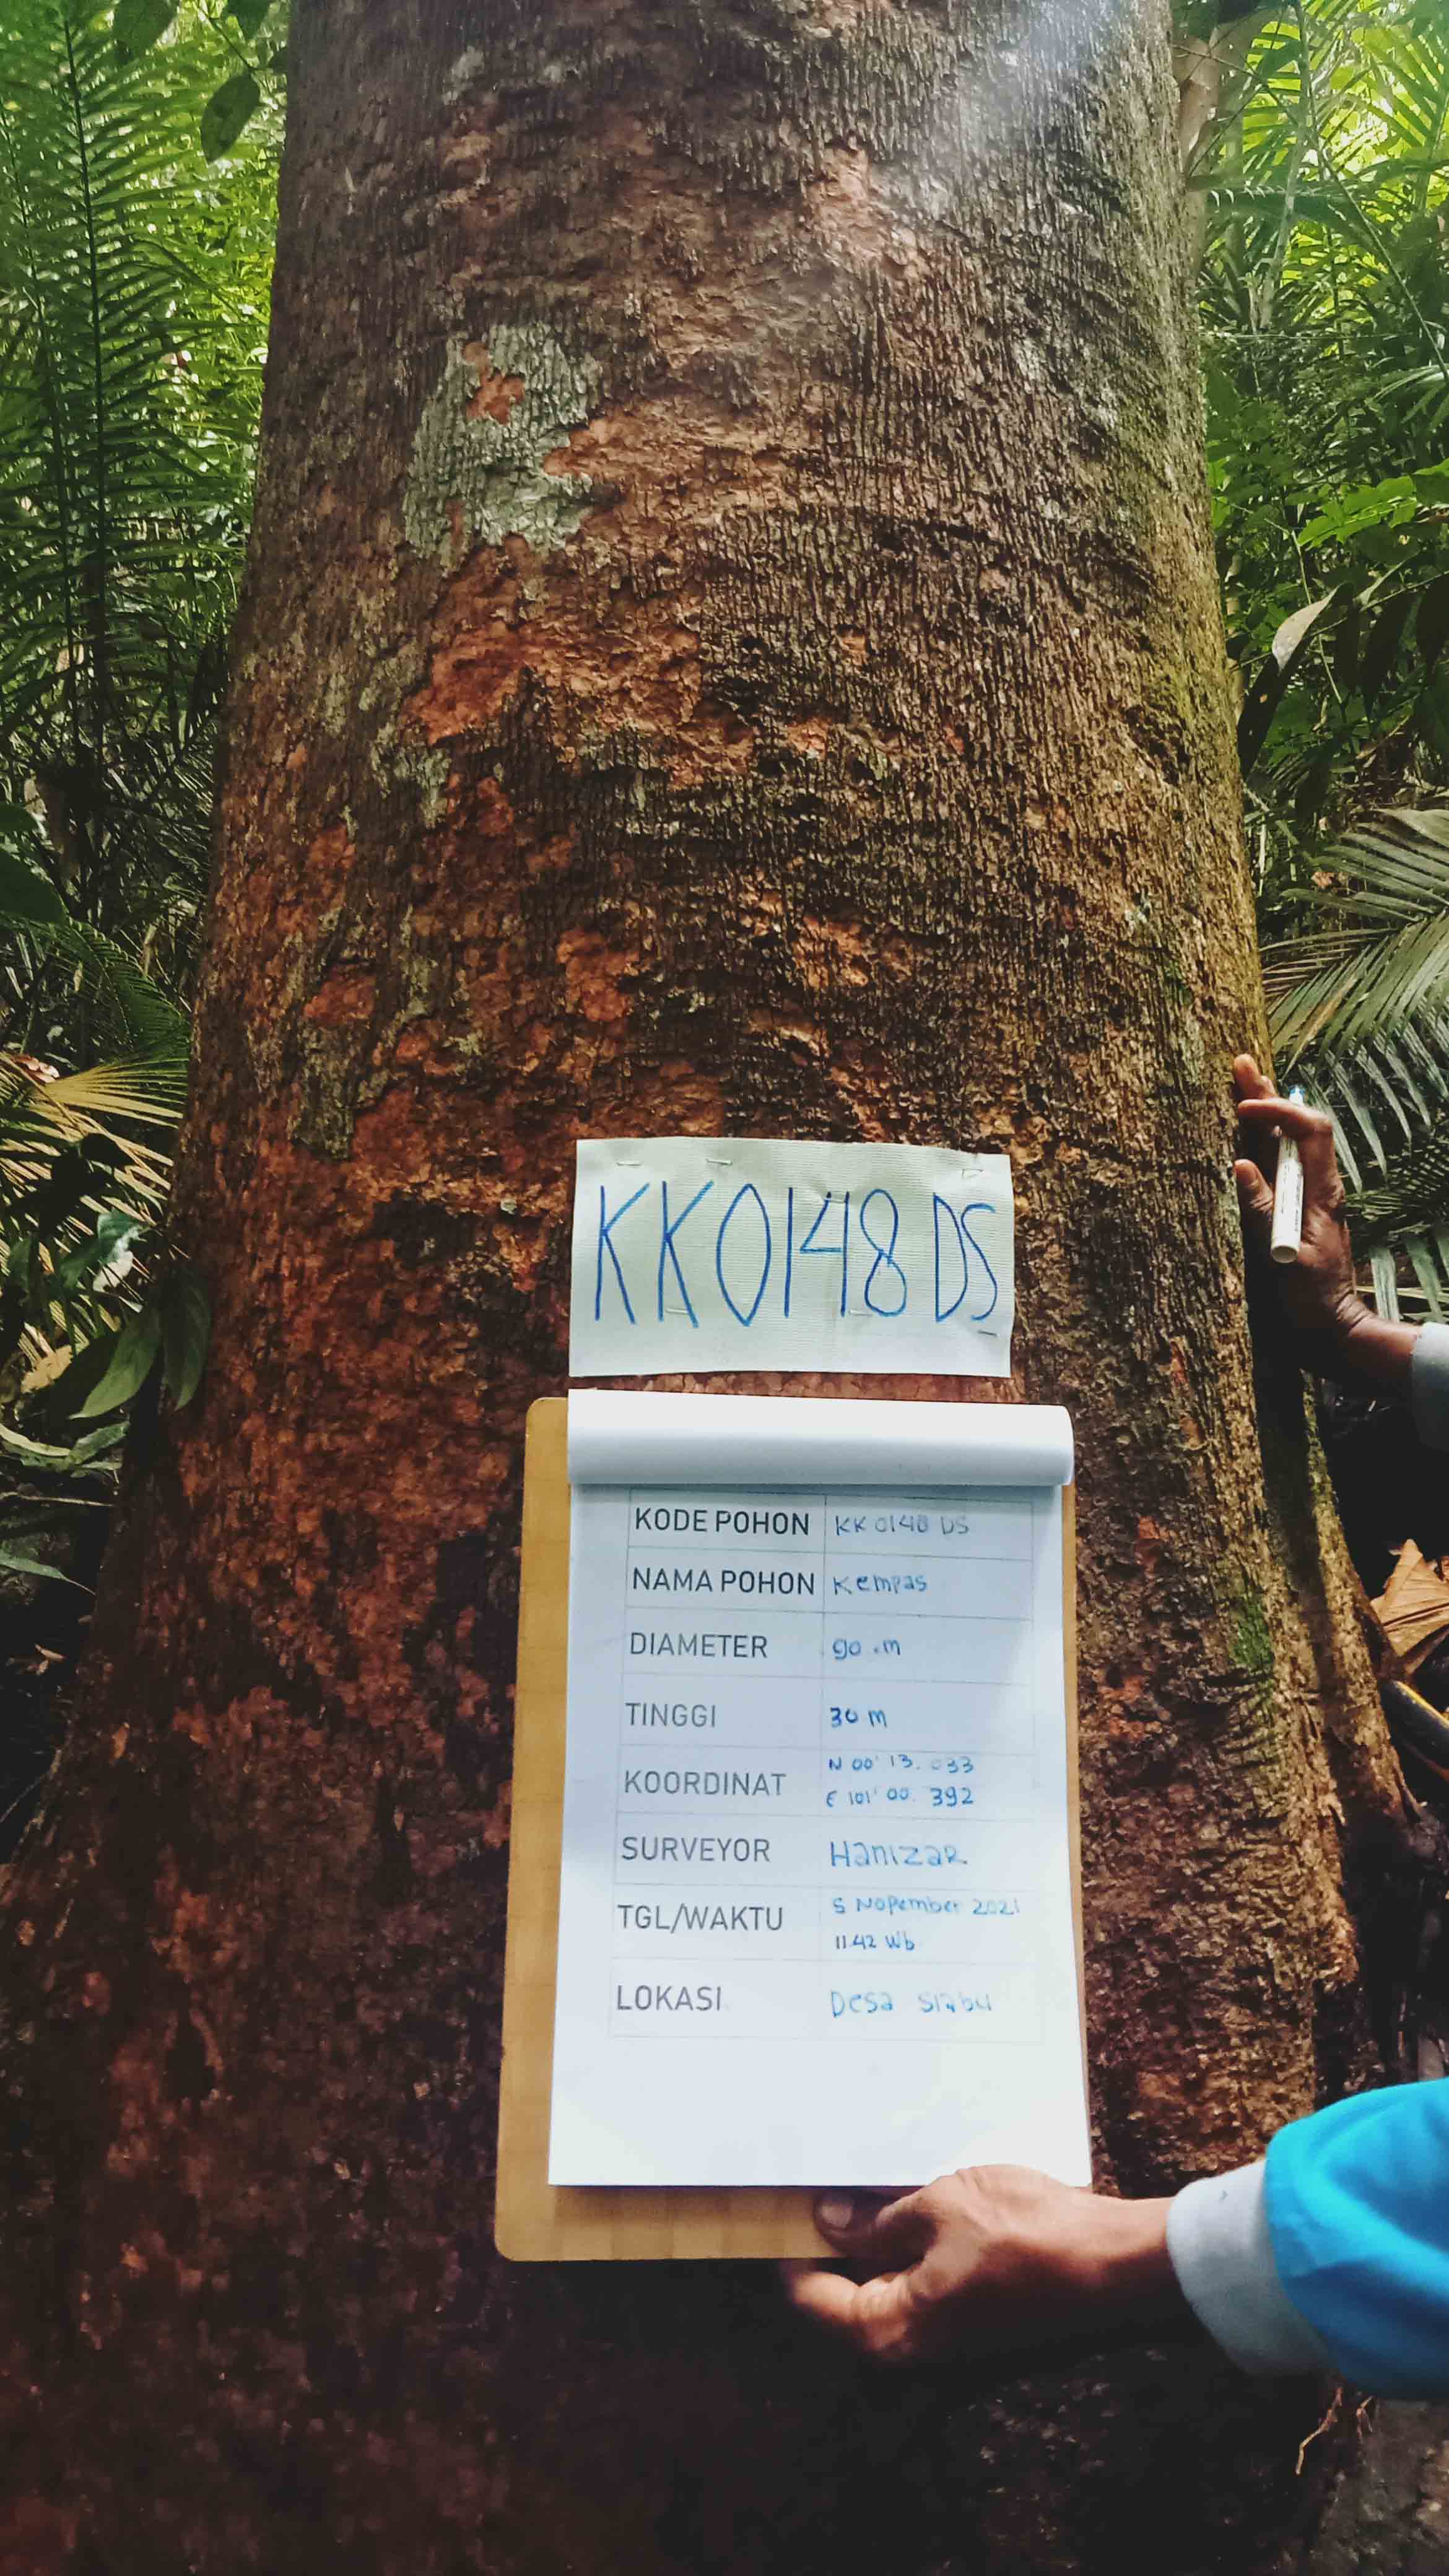 KK0148 DS
KODE POHON KK 0148 DS
NAMA POHON Kempas
DIAMETER 90 cm
TINGGI 30 m
KOORDINAT N 00' 13. 033
E 101' 00. 392
SURVEYOR HanizaR
TGL/WAKTU 5 Nopember 2021
11.42 Wb
LOKASI Desa Siabu